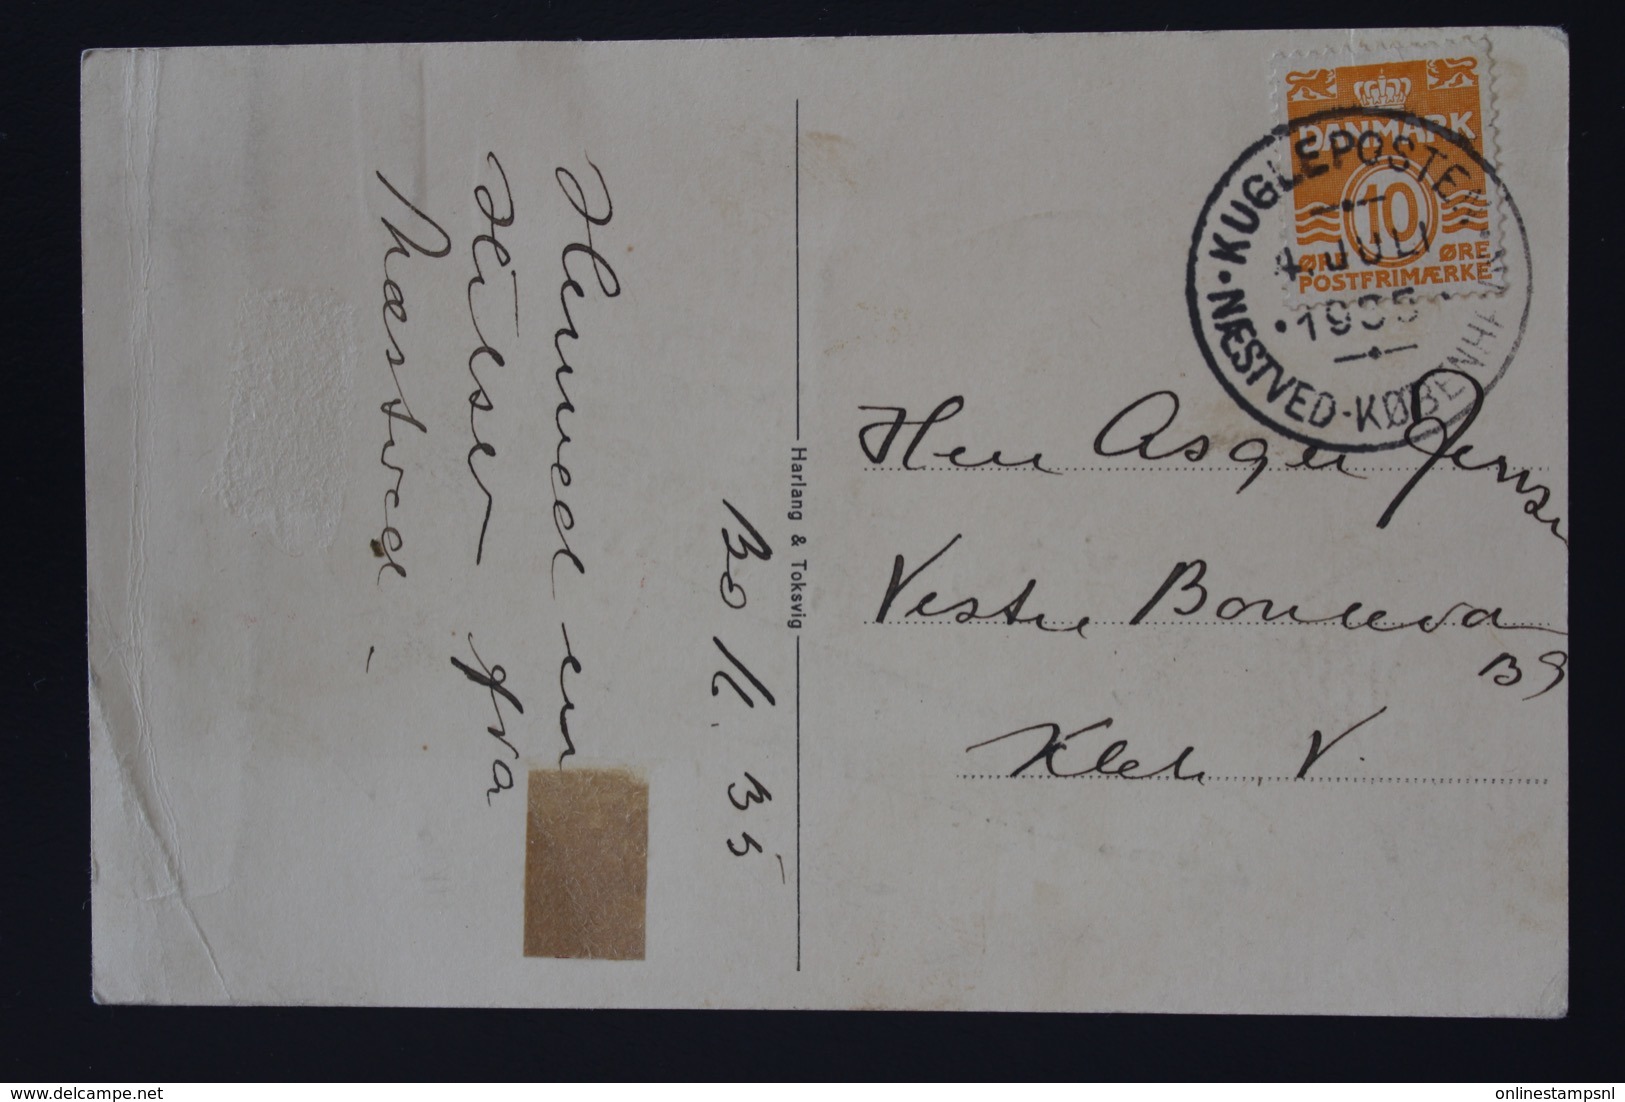 30/6. 35
Hermed en
Hilsen fra
Næstved
Harlang & Toksvig
DANMARK
10
ØRE ØRE
POSTFRIMÆRKE
KUGLEPOSTEN
4. JULI
1935
NÆSTVED-KØBENHAVN
Herr Asger Jensen
Vestre Boulevard
Kbh. V.
onlinestampsnl